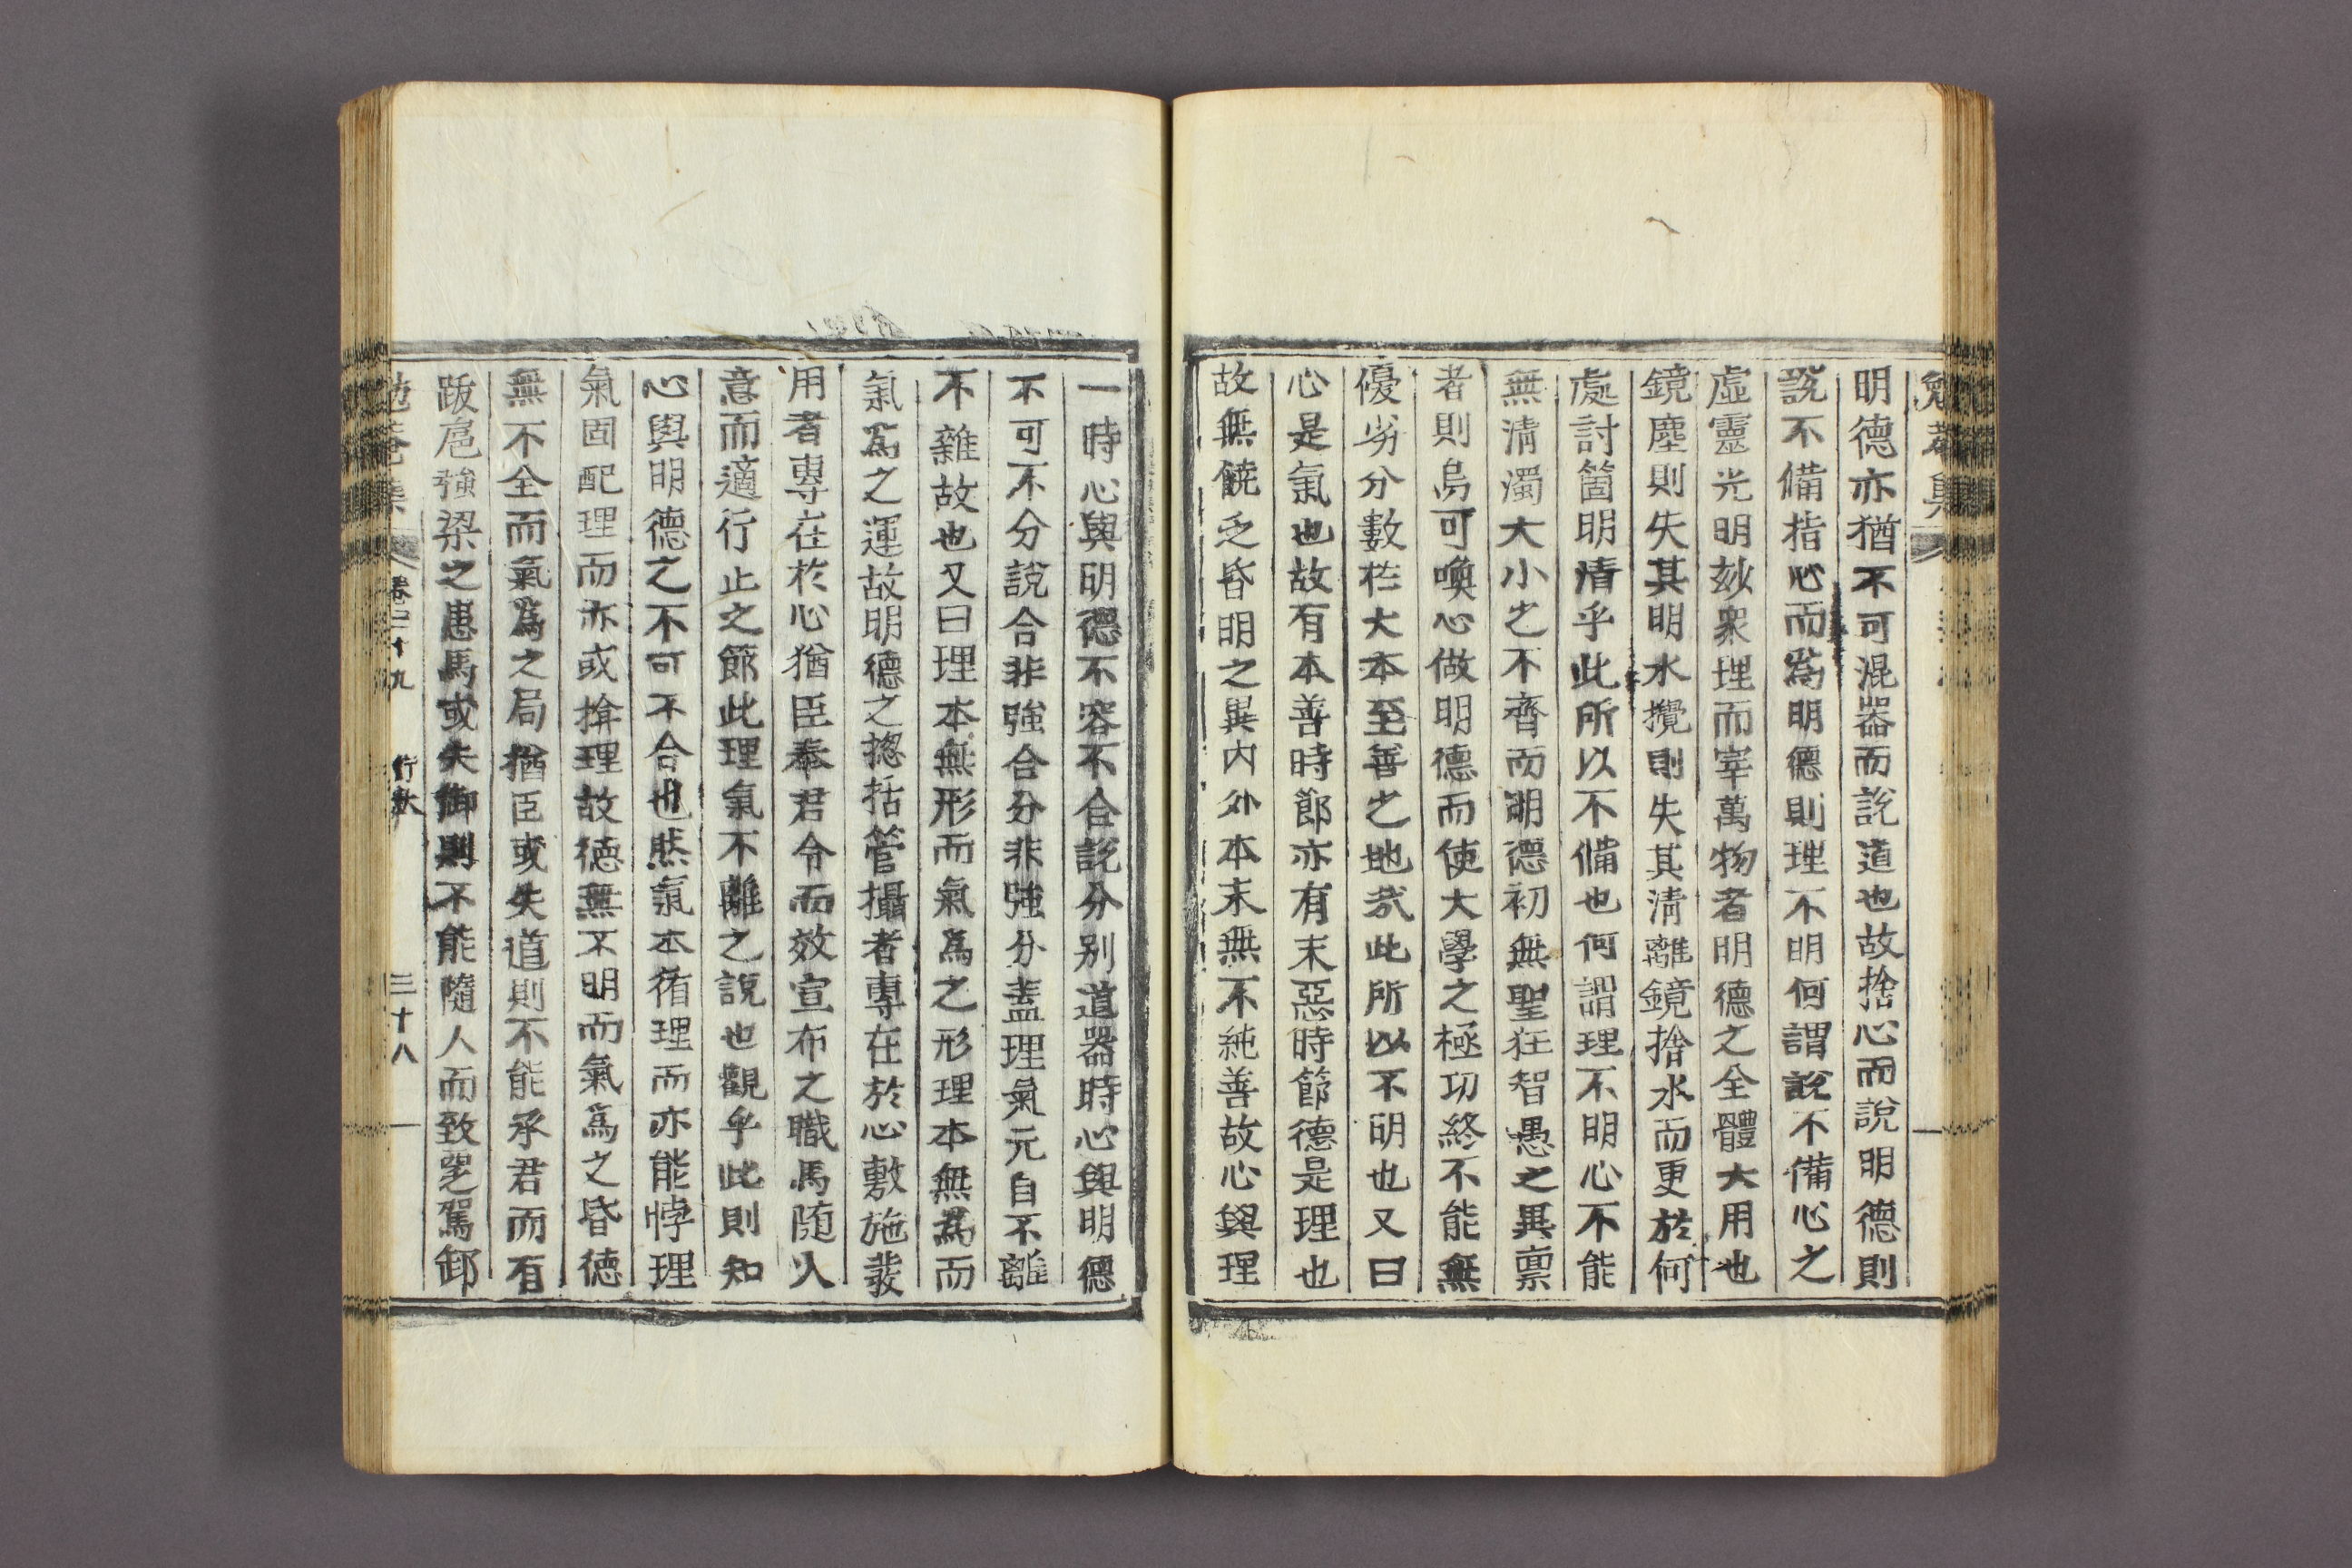 明德亦猶不可混器而說道也故捨心而說明德則
說不備指心而爲明德則理不明何謂說不備心之
虛靈光明妙衆理而宰萬物者明德之全體大用也
鏡塵則失其明水攪則失其淸離鏡捨水而更於何
處討箇明淸乎此所以不備也何謂理不明心不能
無淸濁大小之不齊而明德初無聖狂智愚之異稟
者則烏可喚心做明德而使大學之極功終不能無
優劣分數於大本至善之地哉此所以不明也又曰
心是氣也故有本善時節亦有末惡時節德是理也
故無饒乏昏明之異內外本末無不純善故心與理
一時心與明德不容不合說分別道器時心與明德
不可不分說合非強合分非強分蓋理氣元自不離
不雜故也又曰理本無形而氣爲之形理本無爲而
氣爲之運故明德之摠括管攝者專在於心敷施發
用者專在於心猶臣奉君令而效宣布之職馬隨人
意而適行止之節此理氣不離之說也觀乎此則知
心與明德之不可不合也然氣本循理而亦能悖理
氣固配理而亦或揜理故德無不明而氣爲之昏德
無不全而氣爲之局猶臣或失道則不能承君而有
跋扈強梁之患馬或失御則不能隨人而致覂駕卸
勉菴集 卷二十九 行狀 三十八